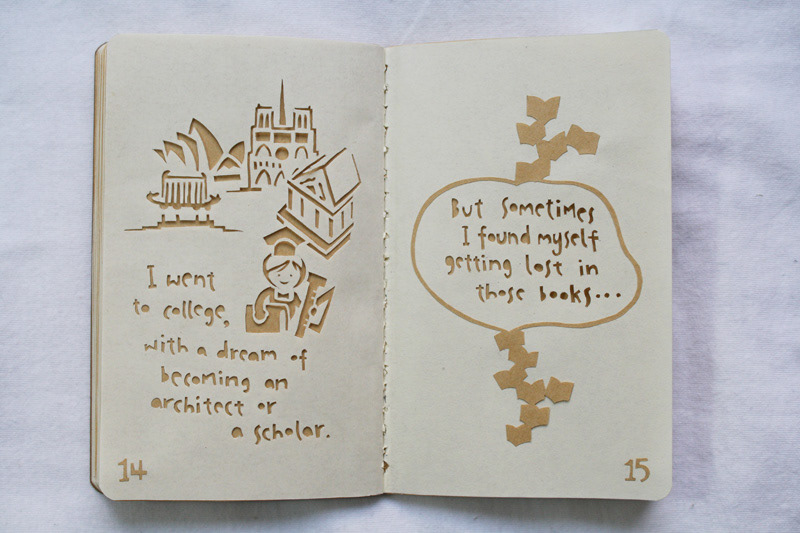 I went
to college,
with a dream of
becoming an
architect or
a scholar.
14
But sometimes
I found myself
getting lost in
those books...
15